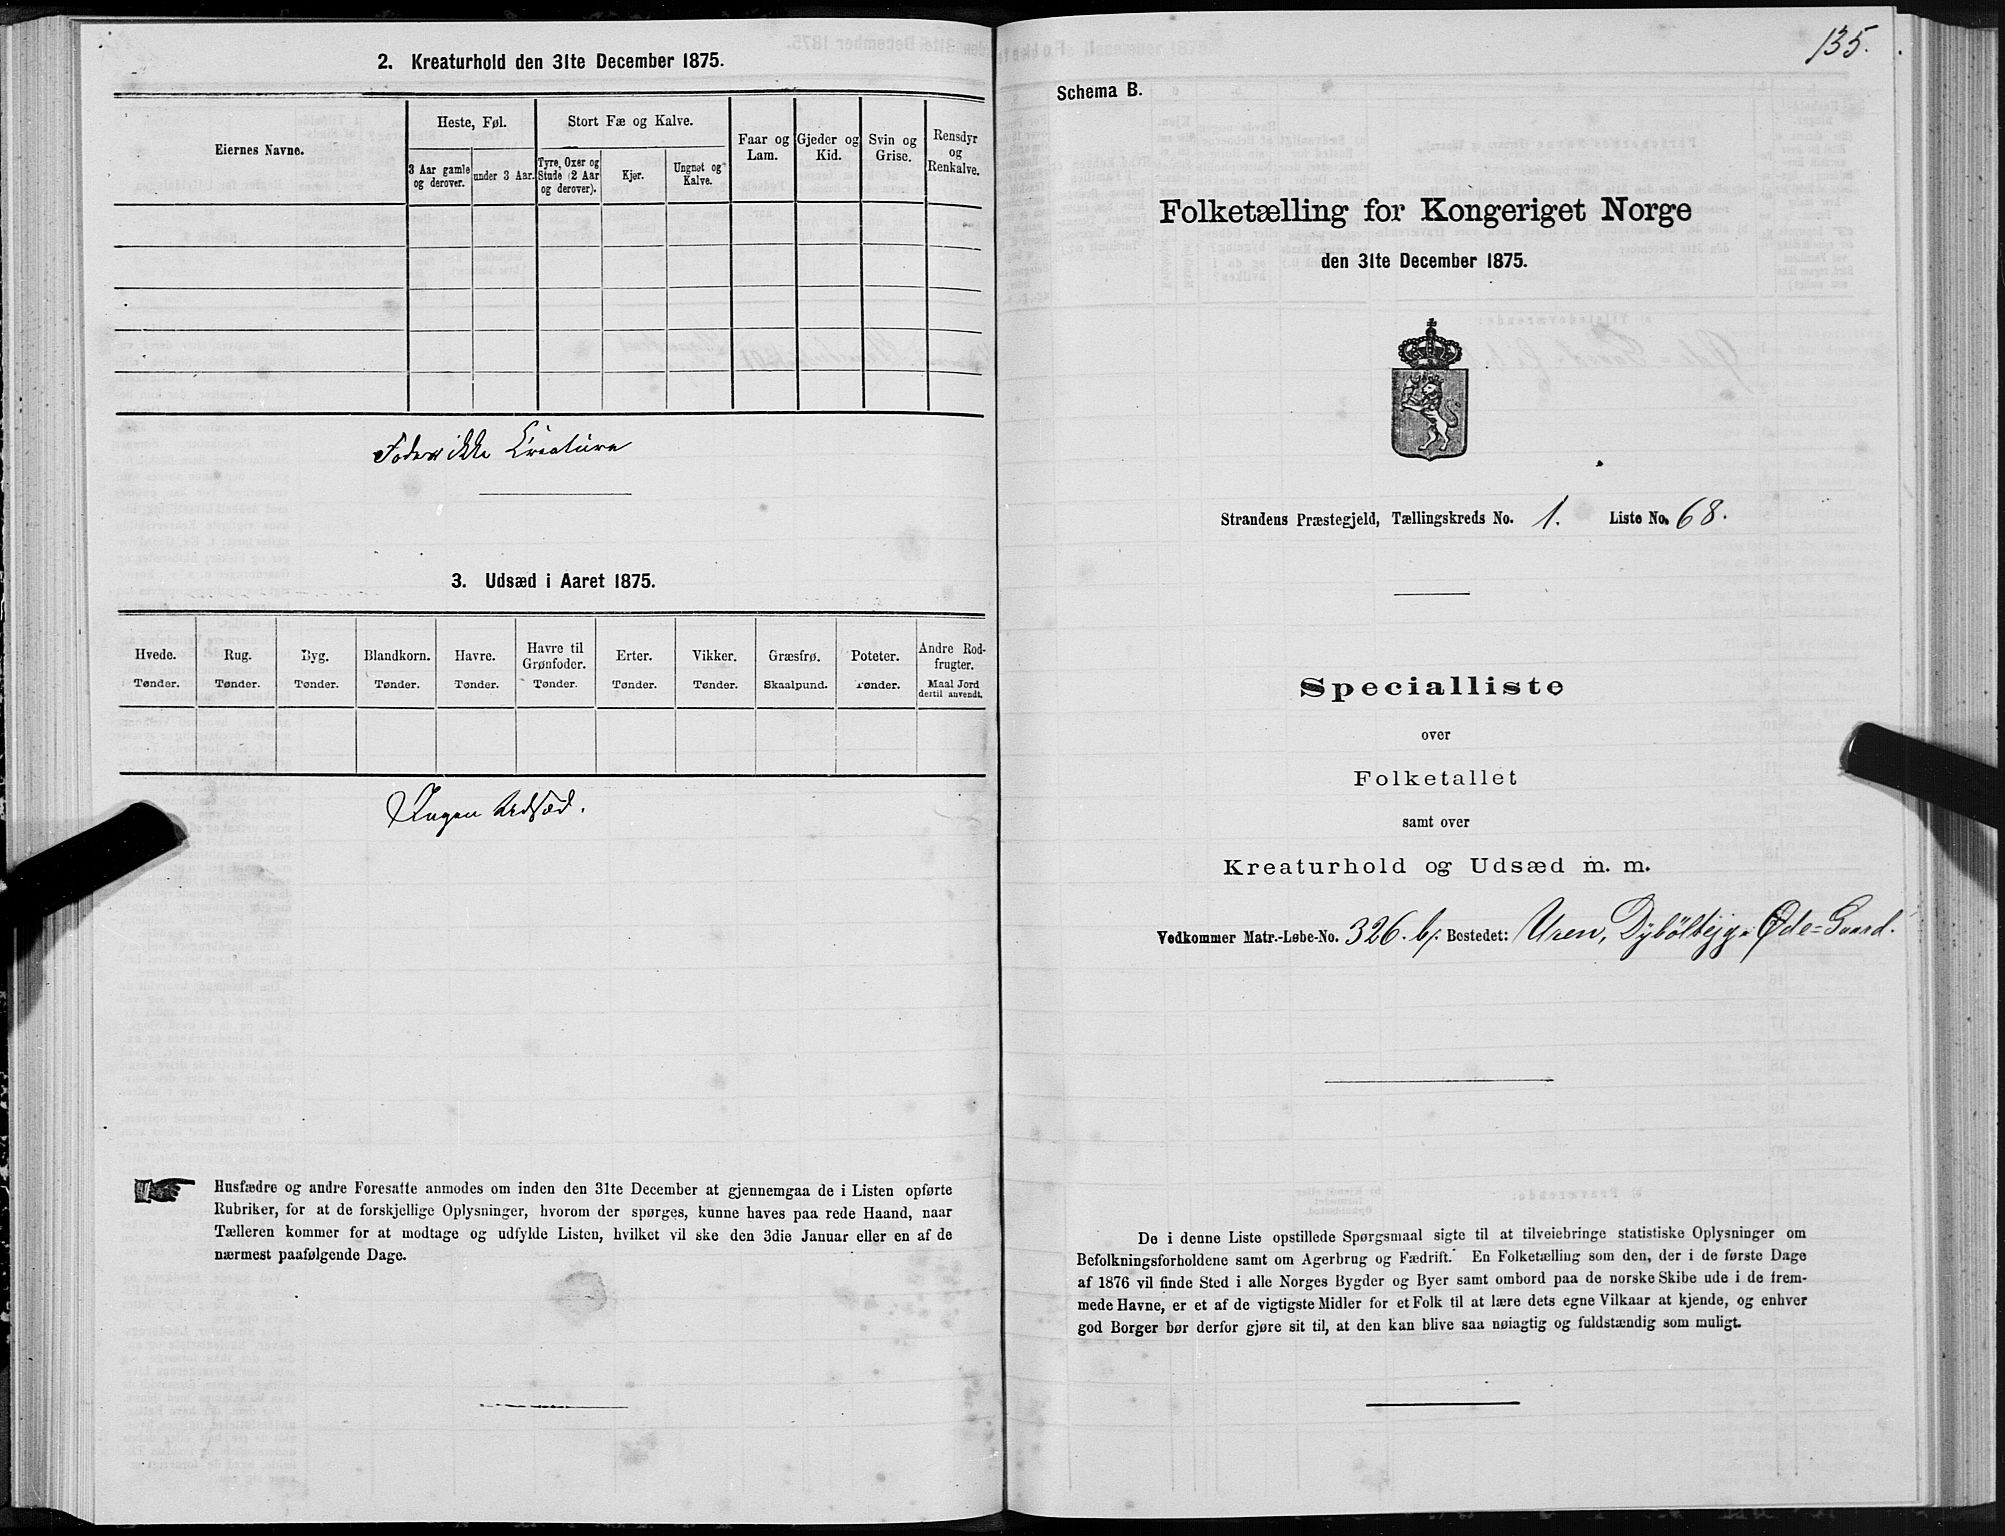 2. Kreaturhold den 31te December 1875.
Eiernes Navne.
Heste, Føl.
Stort Fæ og Kalve.
Faar og
Lam.
Gjeder og
Kid.
Svin og
Grise.
Rensdyr
og
Renkalve.
3 Aar gamle
og derover.
under 3 Aar.
Tyre, Oxer og
Stude (2 Aar
og derover).
Kjør.
Ungnøt og
Kalve.
Foder ikke Creature
3. Udsæd i Aaret 1875.
Hvede.
Rug.
Byg.
Blandkorn.
Havre.
Havre til
Grønfoder.
Erter.
Vikker.
Græsfrø.
Poteter.
Andre Rod-
frugter.
Tønder.
Tønder.
Tønder.
Tønder.
Tønder.
Tønder.
Tønder.
Tønder.
Skaalpund.
Tønder.
Maal Jord
dertil anvendt.
Ingen Udsæd.
Husfædre og andre Foresatte anmodes om inden den 31te December at gjennemgaa de i Listen opførte
Rubriker, for at de forskjellige Oplysninger, hvorom der spørges, kunne haves paa rede Haand, naar
Tælleren kommer for at modtage og udfylde Listen, hvilket vil ske den 3die Januar eller en af de
nærmest paafølgende Dage.
135.
Schema B.
Folketælling for Kongeriget Norge
den 31te December 1875.
Strandens Præstegjeld, Tællingskreds No. 1. Liste No. 68.
Specialliste
over
Folketallet
samt over
Kreaturhold og Udsæd m. m.
Vedkommer Matr.-Løbe-No. 326. b/. Bostedet: Uren, Dybölbjg. Øde=Gaard.
De i denne Liste opstillede Spørgsmaal sigte til at tilveiebringe statistiske Oplysninger om
Befolkningsforholdene samt om Agerbrug og Fædrift. En Folketælling som den, der i de første Dage
af 1876 vil finde Sted i alle Norges Bygder og Byer samt ombord paa de norske Skibe ude i de frem-
mede Havne, er et af de vigtigste Midler for et Folk til at lære dets egne Vilkaar at kjende, og enhver
god Borger bør derfor gjøre sit til, at den kan blive saa nøiagtig og fuldstændig som muligt.